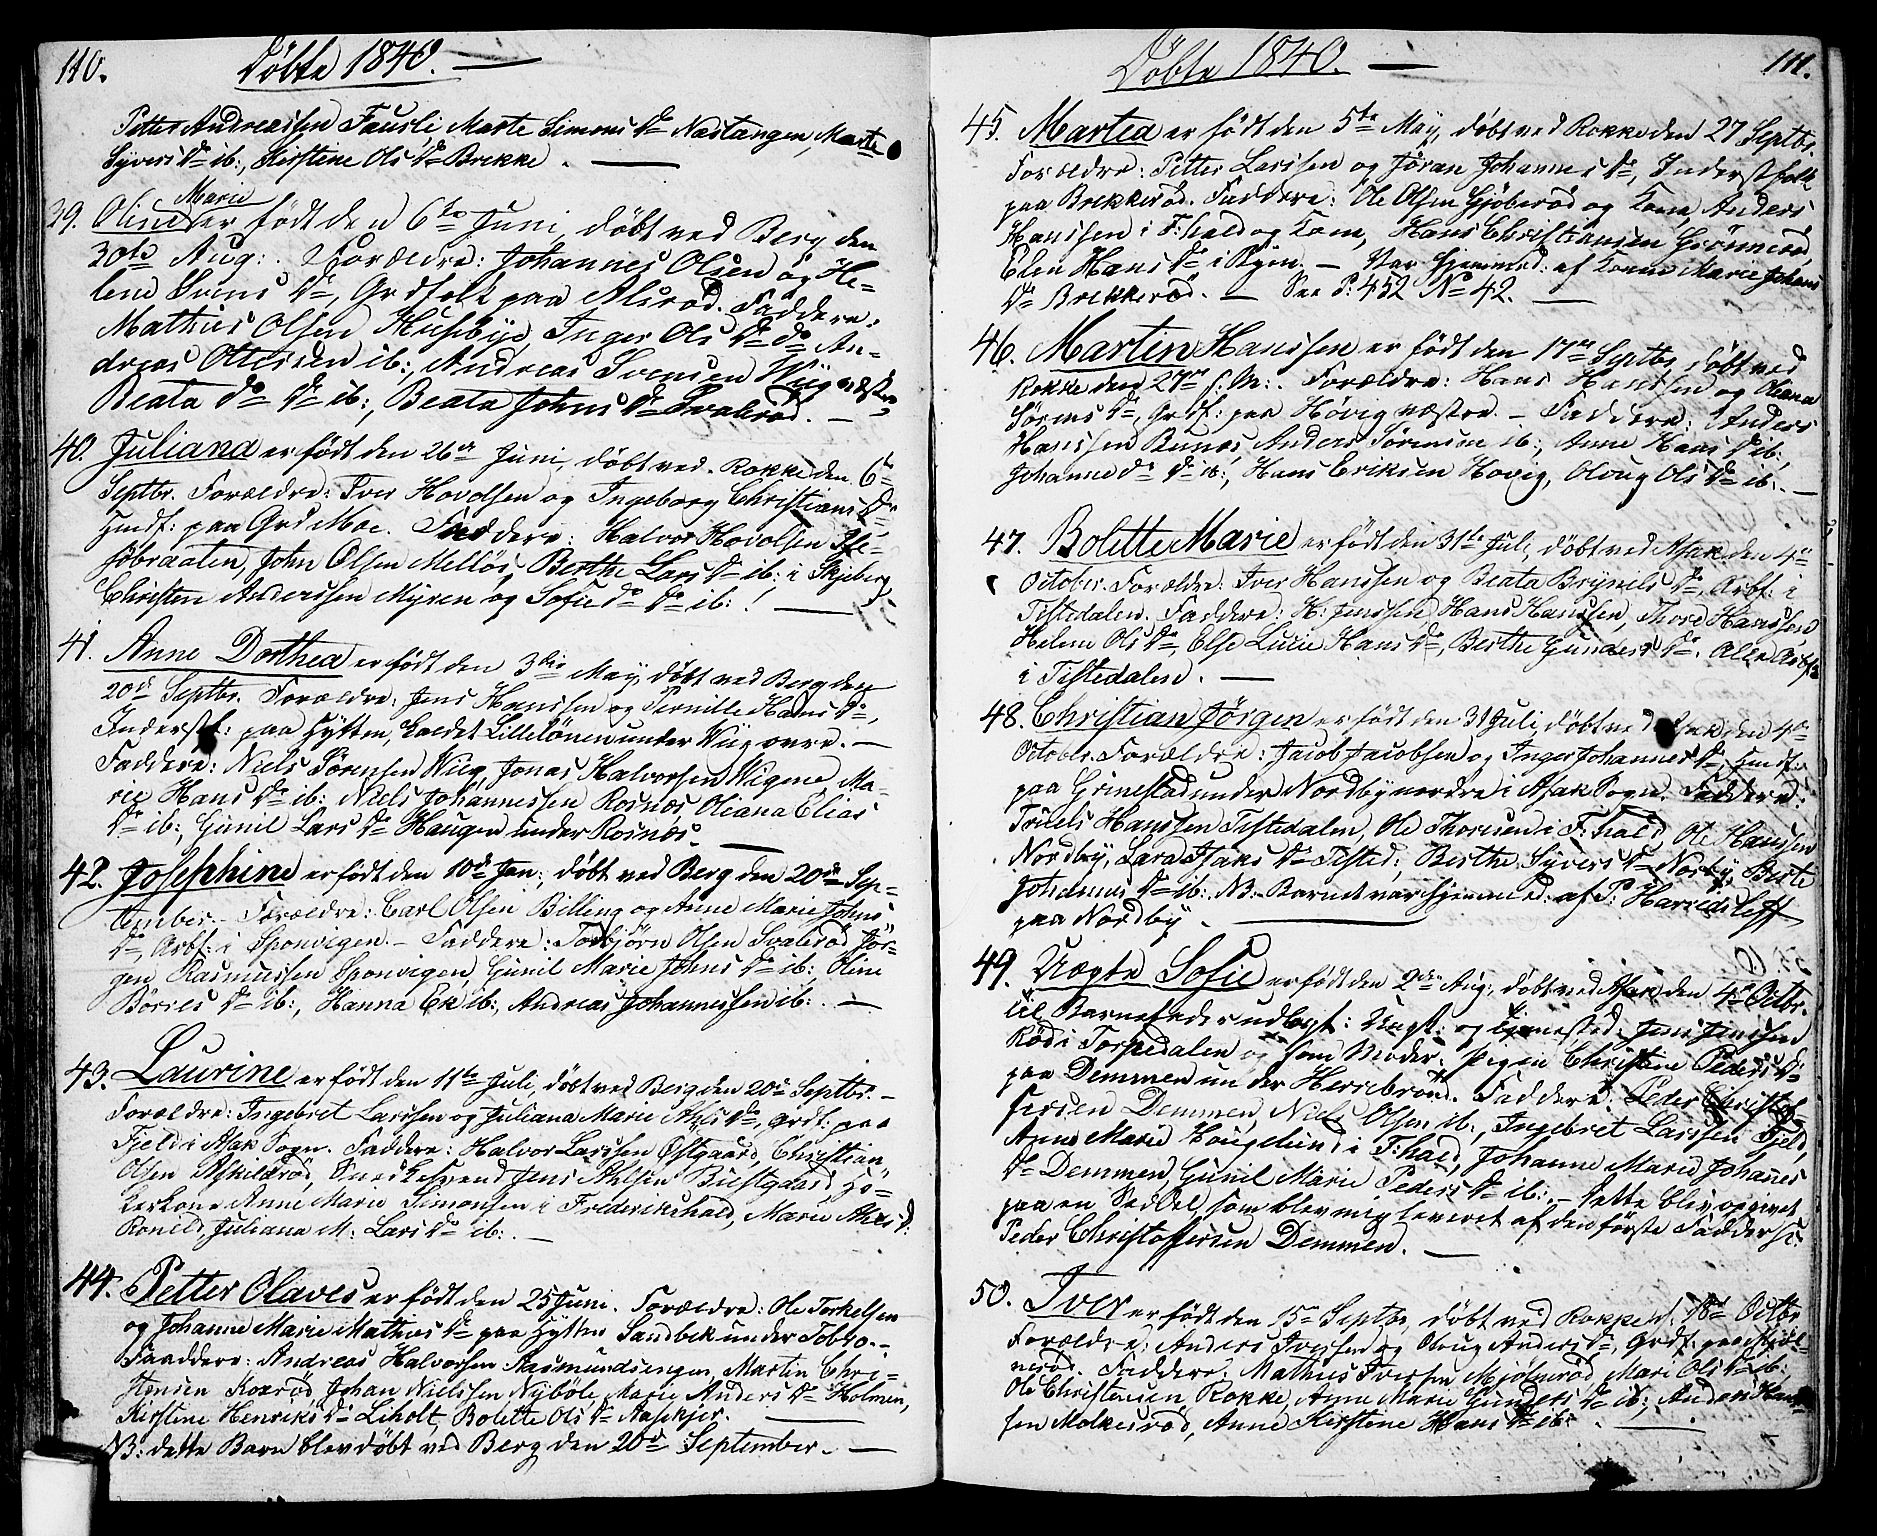 110.
Döbte 1840.
Petter Andreassen Fausli Marte Simons Dr Nastangen, Marte
Syvers Dr ib:, Kirstine Ols Dr Brekke.
Marie
39. Oline er født den 6te Juni, døbt ved Berg den
30te Aug:. Forældre: Johannes Olsen og He-
lene Svens Dr, Grdfolk paa Alsröd. Faddere:
Mathias Olsen Husebye, Inger Ols Dr do An-
dreas Ottersen ib:, Andreas Svensen Wiig næstre,
Beata do Dr ib:, Beata Johns Dr Svaleröd.
40. Juliana er født den 26de Juni, døbt ved Rokke den 6te
Septbr. Forældre: Iver Hovolsen og Ingeborg Christians Dr
Husf: paa Grd Moe. Faddere: Halvor Hovolsen
John Olsen Mellös, Berthe Lars Dr ib: i Skjeberg,
Christen Anderssen Myren og Sofie do Dr ib:
41. Anne Dorthea er født den 3die May, døbt ved Berg den
20de Septbr. Forældre: Jens Hanssen og Pernille Hans Dr,
Inderstf: paa Hytten, kaldet Lillelönen under Wiig övre.
Faddere: Niels Sörensen Wiig, Jonas Halvorsen Wigene, Ma-
rie Hans Dr ib: Niels Johannessen Rosnæs, Oliana Elias
Dr ib:, Gunil Lars Dr Haugen under Rosnæs.
42. Josephine er født den 10de Jan:, døbt ved Berg den 20de Sep-
tember. Forældre: Carl Olsen Billing og Anne Marie Johns
Dr, Arbf: i Sponvigen. Faddere: Torbjörn Olsen Svaleröd Jör-
gen Rasmussen Sponvigen, Gunil Marie Johns Dr ib:, Oline
Börres Dr ib:, Hanna Ek ib:, Andreas Johannessen ib:.
43. Laurine er født den 11te Juli, døbt ved Berg den 20de Septbr.
Forældre: Ingebret Larssen og Juliana Marie Ahls Dr, Grdf: paa
Fjeld i Asak Sogn. Faddere: Halvor Larssen Östgaard, Christian
Olsen Askeleröd, Jens Ahlsen Buestgaard, Hö-
kerkone Anne Marie Simonsen i Frederikshald, Marie Ahls Dr
Ronild, Juliana M: Lars Dr ib:.
44. Petter Olaves er født den 25 Juni. Forældre: Ole Torkelsen
og Johanne Marie Mathias Dr paa Hytten Sandbek under Torpo.
Faaddere: Andreas Halvorsen Aasmundsengen, Martin Chri-
stensen Kosröd, Johan Nielssen Nyböle, Marie Anders Dr Holmen,
Kirstine Henriks Dr Liholt, Bolette Ols Dr Aaskjer.
NB: dette Barn blev døbt ved Berg den 20de September.
111.
Döbte 1840.
45. Martea er født den 5te May, døbt ved Rokke den 27 Septbr.
Forældre: Petter Larssen og Jöran Johannes Dr, Inderstfolk
paa Brekkeröd. Faddere: Ole Olsen Gjöberöd og Kone, Anders
Hanssen i F:hald og Kone, Hans Christiansen Grönneröd,
Elen Hans Dr i Byen. Var hjemmed: af Konen Marie Johans
Dr Brekkeröd. See P: 452 No 42.
46. Martin Hanssen er født den 17de Septbr, døbt ved
Rokke den 27de s. M:. Forældre: Hans Hanssen og Oliana
Sörens Dr, Grdf: paa Hövig næstre. Faddere: Anders
Hanssen Bunæs, Anders Sörensen ib:, Anne Hans Dr ib:,
Johanne do Dr ib:, Hans Eriksen Hovig, Oloug Ols Dr ib:.
47. Bolette Marie er født den 31te Juli, døbt ved Asak den 4de
October. Forældre: Iver Hanssen og Beata Brynils Dr, Arbf: i
Tistedalen. Faddere: H: Jenssen, Hans Hanssen, Thord Hanssen
Helene Ols Dr, Else Lucie Hans Dr, Berthe Gunders Dr. Alle Arbf:
i Tistedalen.
48. Christian Jörgen er født den 31 Juli, døbt ved Asak den 4de
Octobr. Forældre: Jacob Jacobsen og Inger Johannes Dr, Husf:
paa Grinestad under Nordby nordre i Asak Sogn. Faddere:
Tönels Hanssen Tistedalen, Ole Thoresen i F:hald Ole Hanssen
Nordby, Lara Isaks Dr Tisted, Berthe Syvers Dr Norby, Berte
Johannes Dr ib: NB: Barnet var hjemmed: af P: Harredsleff
paa Nordby.
49. Uægte Sofie er født den 2den Aug:, døbt ved Asak den 4de Octbr.
til Barnefader udlagt: Ungk: og tjenested. Jens Jenssen
Röd i Torpedalen og som Moder: Pigen Christine Peders Dr
paa Demmen under Herrebröd. Faddere: Peder Christof-
fersen Demmen, Niels Olsen ib:, Ingebret Larssen Fjeld,
Anne Marie Hougelund i F:hald, Johanne Marie Johanes
Dr Demmen, Gunil Marie Peders Dr ib:. Dette blev opgivet
paa en Seddel, som blev mig leveret af den förste Fadder,
Peder Christoffersen Demmen.
50. Iver er født den 15de Septbr, døbt ved Rokke d. 18de Octbr
Forældre: Anders Iverssen og Oloug Anders Dr, Grdf: paa Mjöl-
neröd. Faddere: Mathias Iversen Mjölneröd, Mari Ols Dr ib:
Ole Christensen Rokke, Anne Marie Gunders Dr ib:, Anders Han-
sen Molkeröd, Anne Kirstine Hans Dr ib: